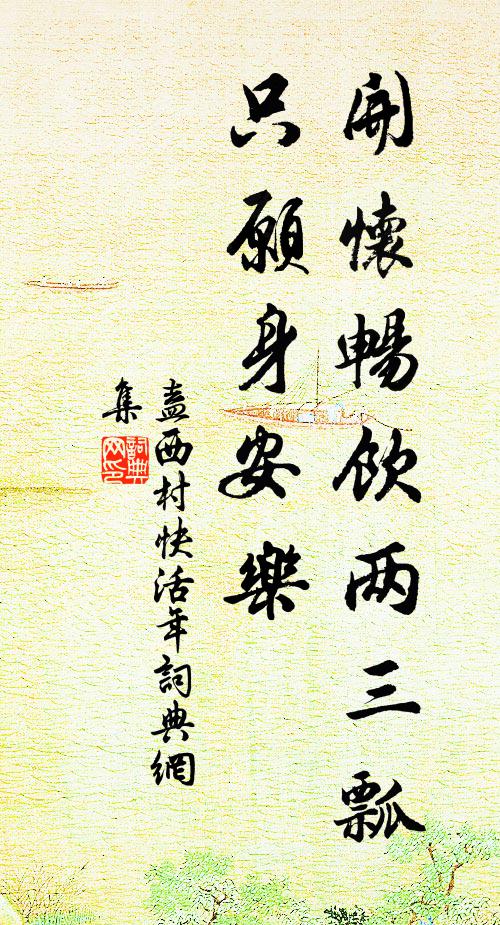 開懷暢飲两三瓢
只願身安樂
盍西村快活年詞典網
集
詞典
网印